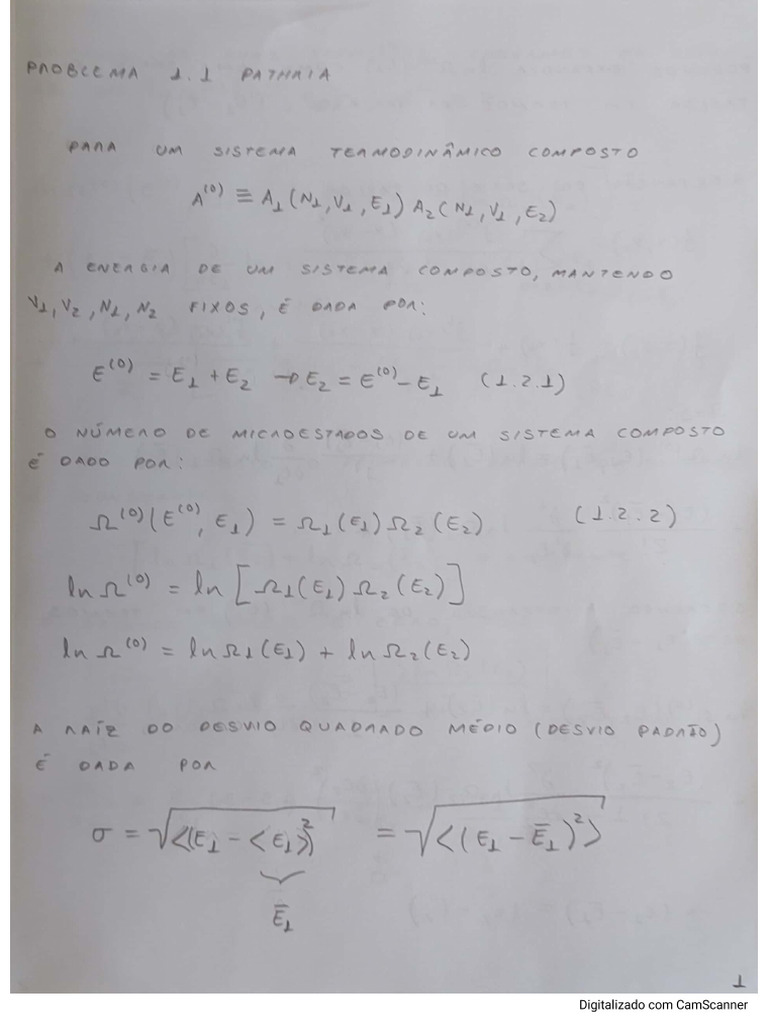 PROBLEMA 1.1 PATHRIA
PARA UM SISTEMA TERMODINÂMICO COMPOSTO
A⁽⁰⁾ ≡ A₁(N₁,V₁,E₁) A₂(N₁,V₁,E₂)
A ENERGIA DE UM SISTEMA COMPOSTO, MANTENDO
V₁,V₂,N₁,N₂ FIXOS, É DADA POR:
E⁽⁰⁾ = E₁ + E₂ → E₂ = E⁽⁰⁾ - E₁ (1.2.1)
O NÚMERO DE MICROESTADOS DE UM SISTEMA COMPOSTO
É DADO POR:
Ω⁽⁰⁾(E⁽⁰⁾, E₁) = Ω₁(E₁) Ω₂(E₂) (1.2.2)
ln Ω⁽⁰⁾ = ln [Ω₁(E₁) Ω₂(E₂)]
ln Ω⁽⁰⁾ = ln Ω₁(E₁) + ln Ω₂(E₂)
A RAÍZ DO DESVIO QUADRADO MÉDIO (DESVIO PADRÃO)
É DADA POR
σ = √<(E₁ - <E₁>)²> = √<(E₁ - Ē₁)²>
Ē₁
1
Digitalizado com CamScanner